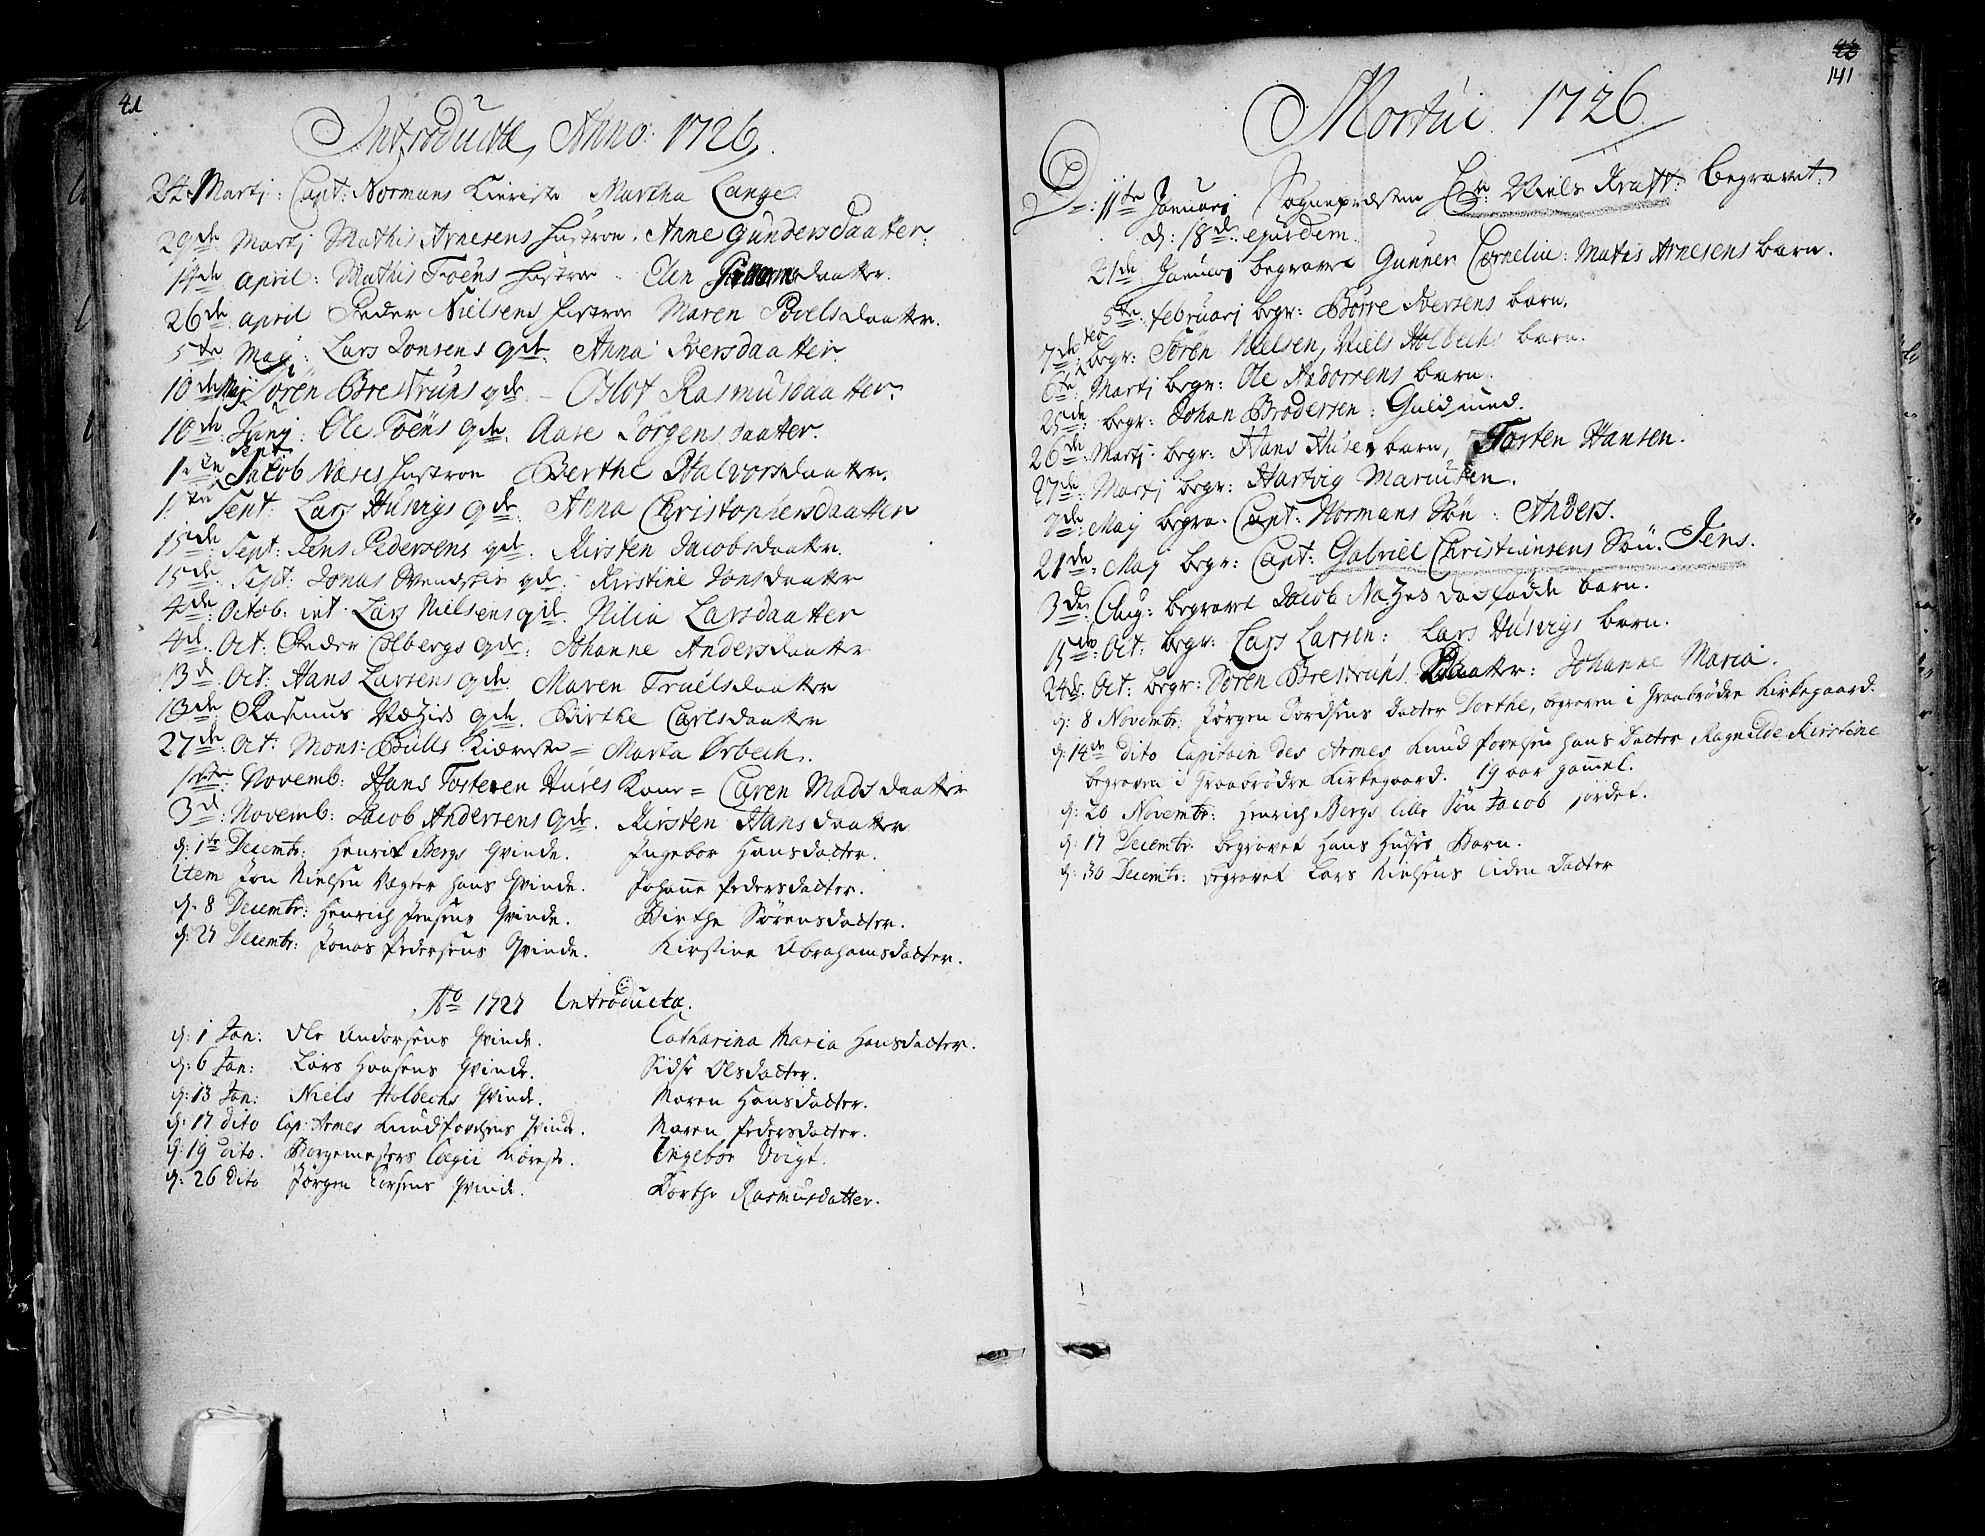 41
Introductæ, Anno: 1726.
24. Martj: Capt: Normans Kiereste Martha Lange
29de Martj Mathis Arnesens hustroe. Anne Gundersdaatter.
14de april: Mathis Foëns hustroe Elen daatter.
26de april Peder Nielsens hustroe Maren Povelsdaatter.
5te Maij: Lars Jonsens qde. Anna Iversdaatter
10de Maij Sören Brestruns qde. - Oslot Rasmusdaatter.
10de Junij: Ole Foëns qde. Aase Jörgens daatter.
Sept
1. Jacob Næses hustroe Berthe Halvorsdaatter.
1. Sept: Lars Husvigs qde Anna Christophersdaatter
15de Sept: Jens Pedersens qde. Kirsten Jacobsdaatter.
15de Sept: Jonas qde. Kirstine Jonsdaatter
4de Octob: int. Lars Nielsens qde. Nilia Larsdaatter
4de Oct: Peder Colbergs qde: Johanne Andersdaatter
13d Oct: Hans Larsens qde. Maren Truelsdaatter
13de Rasmus qde. Birthe Carlsdaatter
27de Oct: Mons: Bulls Kiæreste = Marta Ørbech.
1ste Novemb: Hans Torstensen Huses Kone = Caren Madsdaatter
3d Novemb: Jacob Andersens qde. Kirsten Hansdaatter
d: 1te Decembr: Henrik Bergs Qvinde. Ingebor Hansdatter.
Item Jon Nielsen Vægter hans Qvinde. Johanne Pedersdatter.
d. 8 Decembr: Henrich Jensens Qvinde. Birthe Sørensdatter.
d: 27 Decembr: Jonas Pedersens Qvinde. Kirstine Abrahamsdatter.
Ao 1727 Introducta.
d: 1 Jan: Ole Andorsens Qvinde. Catharina Maria Hansdatter.
d: 6 Jan: Lars Hansens Qvinde. Sidse Olsdatter.
d: 13 Jan: Niels Holbechs Qvinde. Maren Hansdatter.
d: 17 dito Cap: Armes Knud Povelsens Qvinde. Maren Pedersdatter.
d: 19 dito. Borgemesters Kiæreste. Ingebor Voigt.
d: 26 dito Jørgen Torsens Qvinde. Dorthe Rasmusdatter.
141
Mortui 1726
D: 11te Januarj Sognepresten Hr: Niels Kraft: begravet.
d: 18de ejusdem.
21de Januarj begravet Gunner Cornelia: Matis Arnesens barn.
5te februarj begr: Börre Iversens barn.
7de begr: Sören Nielsen, Niels Holbechs barn.
6te Martj begr: Ole Andorsens barn.
25de: begr: Johan Brodersen: Guldsmed.
26de Martj begr: Hans Huses barn, Torsten Hansen.
27de Martj begr: Hartvig
7de Maij begra. Capt: Normans Sön: Anders.
21de. Maj begr: Capt: Gabriel Christiansens Sön. Jens.
3de Aug: begravet Jacob dödfödde barn.
15de Oct: begr: Lars Larsen: Lars Husvigs barn.
24de Oct: begr: Sören Brestruns Daatter: Johanne Maria.
d: 8 Novembr: Jørgen Tordsens Datter Dorthe, begraven i Graabrødre Kirkegaard.
d: 14de dito Capitain des Armes Knud Povelsen hans Datter Ragnilde Kirstine
begraven i Graabrødre Kirkegaard. 19 aar gammel.
d: 20 Novembr: Henrich Bergs lille Søn Jacob jordet.
d: 17 Decembr. begravet Hans Huses Barn.
d: 30 Decembr: begravet Lars Nielsens liden Datter